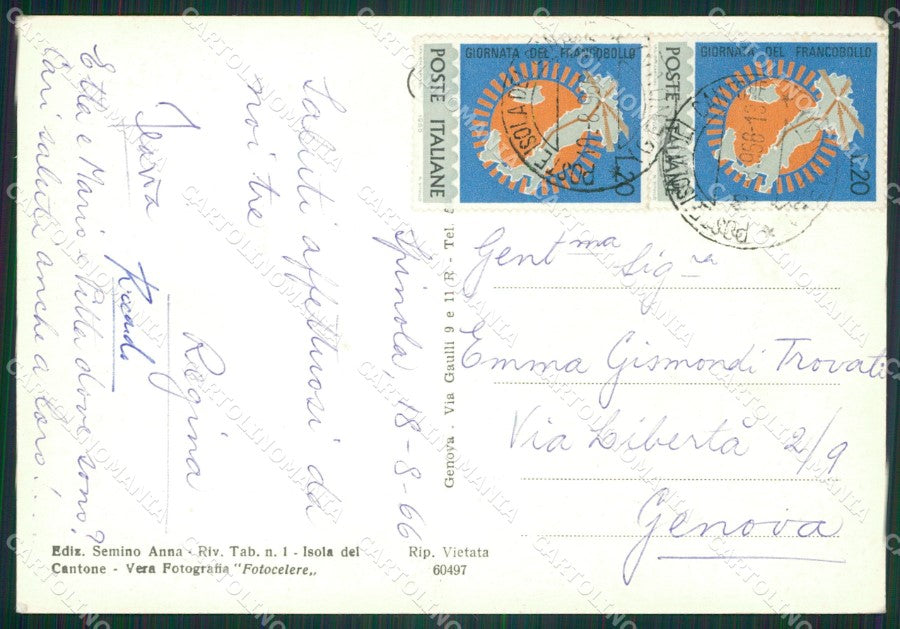 POSTE ITALIANE
GIORNATA DEL FRANCOBOLLO
L.20
POSTE ITALIANE
GIORNATA DEL FRANCOBOLLO
L.20
Spinola, 18-8-66
Saluti affettuosi da
noi tre
Regina
Riccardo
Etta e Mario e Villa dove sono?
Cari saluti anche a loro!..
Gent.ma Sig.ra
Emma Gismondi Trovati
Via Libertà 2/9
Genova
Genova - Via Gaulli 9 e 11 R - Tel.
Ediz. Semino Anna - Riv. Tab. n. 1 - Isola del
Cantone - Vera Fotografia "Fotocelere„
Rip. Vietata
60497
CARTOLINOMANIA